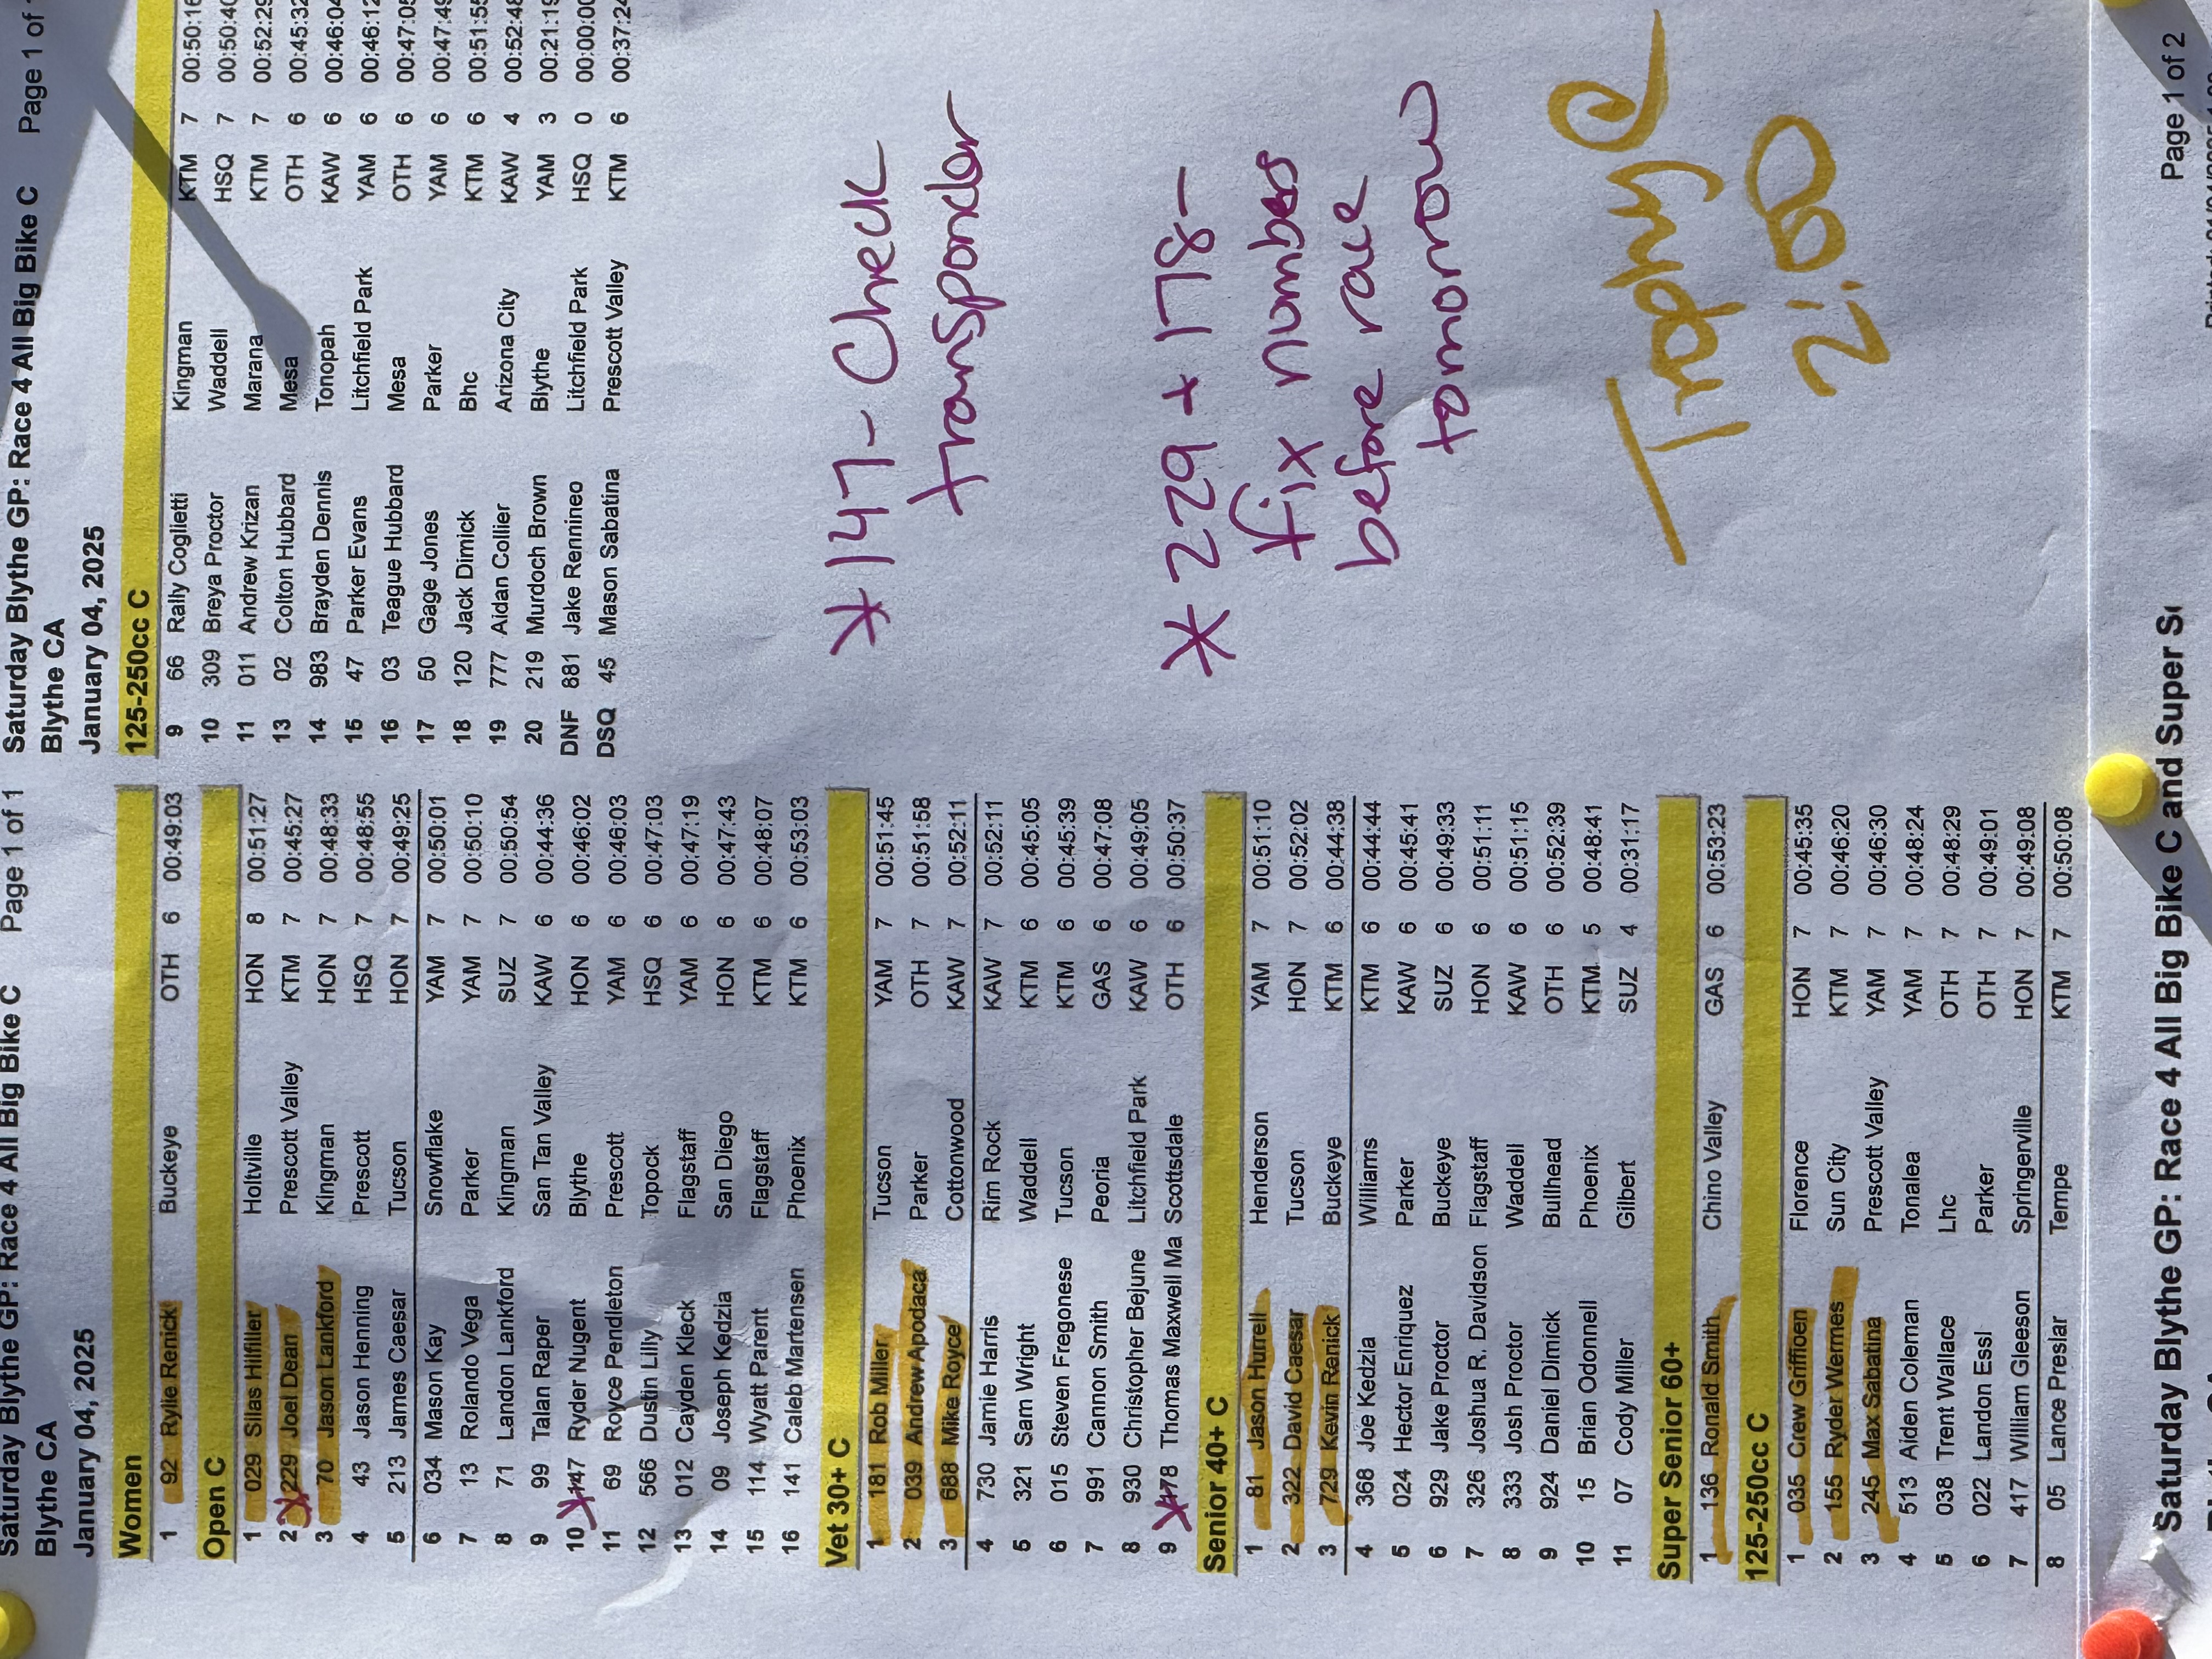 Saturday Blythe GP: Race 4 All Big Bike C Page 1 of 1
Blythe CA
January 04, 2025
Women
1 92 Rylie Renick Buckeye OTH 6 00:49:03
Open C
1 029 Silas Hilfiller Holtville HON 8 00:51:27
2 229 Joel Dean Prescott Valley KTM 7 00:45:27
3 70 Jason Lankford Kingman HON 7 00:48:33
4 43 Jason Henning Prescott HSQ 7 00:48:55
5 213 James Caesar Tucson HON 7 00:49:25
6 034 Mason Kay Snowflake YAM 7 00:50:01
7 13 Rolando Vega Parker YAM 7 00:50:10
8 71 Landon Lankford Kingman SUZ 7 00:50:54
9 99 Talan Raper San Tan Valley KAW 6 00:44:36
10 147 Ryder Nugent Blythe HON 6 00:46:02
11 69 Royce Pendleton Prescott YAM 6 00:46:03
12 566 Dustin Lilly Topock HSQ 6 00:47:03
13 012 Cayden Kleck Flagstaff YAM 6 00:47:19
14 09 Joseph Kedzia San Diego HON 6 00:47:43
15 114 Wyatt Parent Flagstaff KTM 6 00:48:07
16 141 Caleb Martensen Phoenix KTM 6 00:53:03
Vet 30+ C
1 181 Rob Miller Tucson YAM 7 00:51:45
2 039 Andrew Apodaca Parker OTH 7 00:51:58
3 688 Mike Royce Cottonwood KAW 7 00:52:11
4 730 Jamie Harris Rim Rock KAW 7 00:52:11
5 321 Sam Wright Waddell KTM 6 00:45:05
6 015 Steven Fregonese Tucson KTM 6 00:45:39
7 991 Cannon Smith Peoria GAS 6 00:47:08
8 930 Christopher Bejune Litchfield Park KAW 6 00:49:05
9 178 Thomas Maxwell Ma Scottsdale OTH 6 00:50:37
Senior 40+ C
1 81 Jason Hurrell Henderson YAM 7 00:51:10
2 322 David Caesar Tucson HON 7 00:52:02
3 729 Kevin Renick Buckeye KTM 6 00:44:38
4 368 Joe Kedzia Williams KTM 6 00:44:44
5 024 Hector Enriquez Parker KAW 6 00:45:41
6 929 Jake Proctor Buckeye SUZ 6 00:49:33
7 326 Joshua R. Davidson Flagstaff HON 6 00:51:11
8 333 Josh Proctor Waddell KAW 6 00:51:15
9 924 Daniel Dimick Bullhead OTH 6 00:52:39
10 15 Brian Odonnell Phoenix KTM 5 00:48:41
11 07 Cody Miller Gilbert SUZ 4 00:31:17
Super Senior 60+
1 136 Ronald Smith Chino Valley GAS 6 00:53:23
125-250cc C
1 035 Crew Griffioen Florence HON 7 00:45:35
2 155 Ryder Wermes Sun City KTM 7 00:46:20
3 245 Max Sabatina Prescott Valley YAM 7 00:46:30
4 513 Aiden Coleman Tonalea YAM 7 00:48:24
5 038 Trent Wallace Lhc OTH 7 00:48:29
6 022 Landon Essl Parker OTH 7 00:49:01
7 417 William Gleeson Springerville HON 7 00:49:08
8 05 Lance Preslar Tempe KTM 7 00:50:08
Saturday Blythe GP: Race 4 All Big Bike C Page 1 of
Blythe CA
January 04, 2025
125-250cc C
9 66 Rally Coglietti Kingman KTM 7 00:50:16
10 309 Breya Proctor Waddell HSQ 7 00:50:40
11 011 Andrew Krizan Marana KTM 7 00:52:29
13 02 Colton Hubbard Mesa OTH 6 00:45:32
14 983 Brayden Dennis Tonopah KAW 6 00:46:04
15 47 Parker Evans Litchfield Park YAM 6 00:46:12
16 03 Teague Hubbard Mesa OTH 6 00:47:05
17 50 Gage Jones Parker YAM 6 00:47:49
18 120 Jack Dimick Bhc KTM 6 00:51:55
19 777 Aidan Collier Arizona City KAW 4 00:52:48
20 219 Murdoch Brown Blythe YAM 3 00:21:19
DNF 881 Jake Rennineo Litchfield Park HSQ 0 00:00:00
DSQ 45 Mason Sabatina Prescott Valley KTM 6 00:37:24
*147- Check
transponder
* 229 + 178-
fix numbers
before race
tomorrow
Trophy @
2:00
Saturday Blythe GP: Race 4 All Big Bike C and Super Page 1 of 2